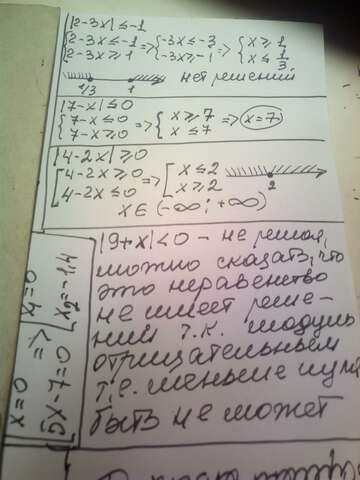 |2-3x| ≤ -1
{2-3x ≤ -1 => {-3x ≤ -3 => {x ≥ 1
{2-3x ≥ 1 {-3x ≥ -1 {x ≤ 1/3.
1/3 1 нет решений
|7-x| ≤ 0
{7-x ≤ 0 => {x ≥ 7 => x=7
{7-x ≥ 0 {x ≤ 7
|4-2x| ≥ 0
[4-2x ≥ 0 => [x ≤ 2
[4-2x ≤ 0 [x ≥ 2 2
x ∈ (-∞; +∞)
|9+x| < 0 - не решая,
можно сказать, что
это неравенство
не имеет реше-
ний т.к. модуль
отрицательным
т.е. меньше нуля
быть не может
x=0 => x₁=0
5x-7=0 x₂=-1,4